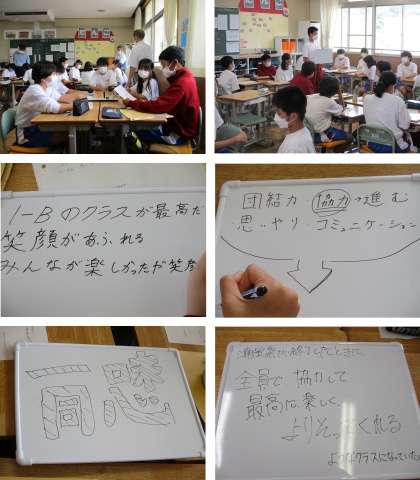 1-Bのクラスが最高だ
笑顔があふれる
みんなが楽しかったや笑顔
団結力 協力→進む
思いやり・コミュニケーション
一味
同心
全員で協力して
最高に楽しく
よりそってくれる
ようなクラスになっていた